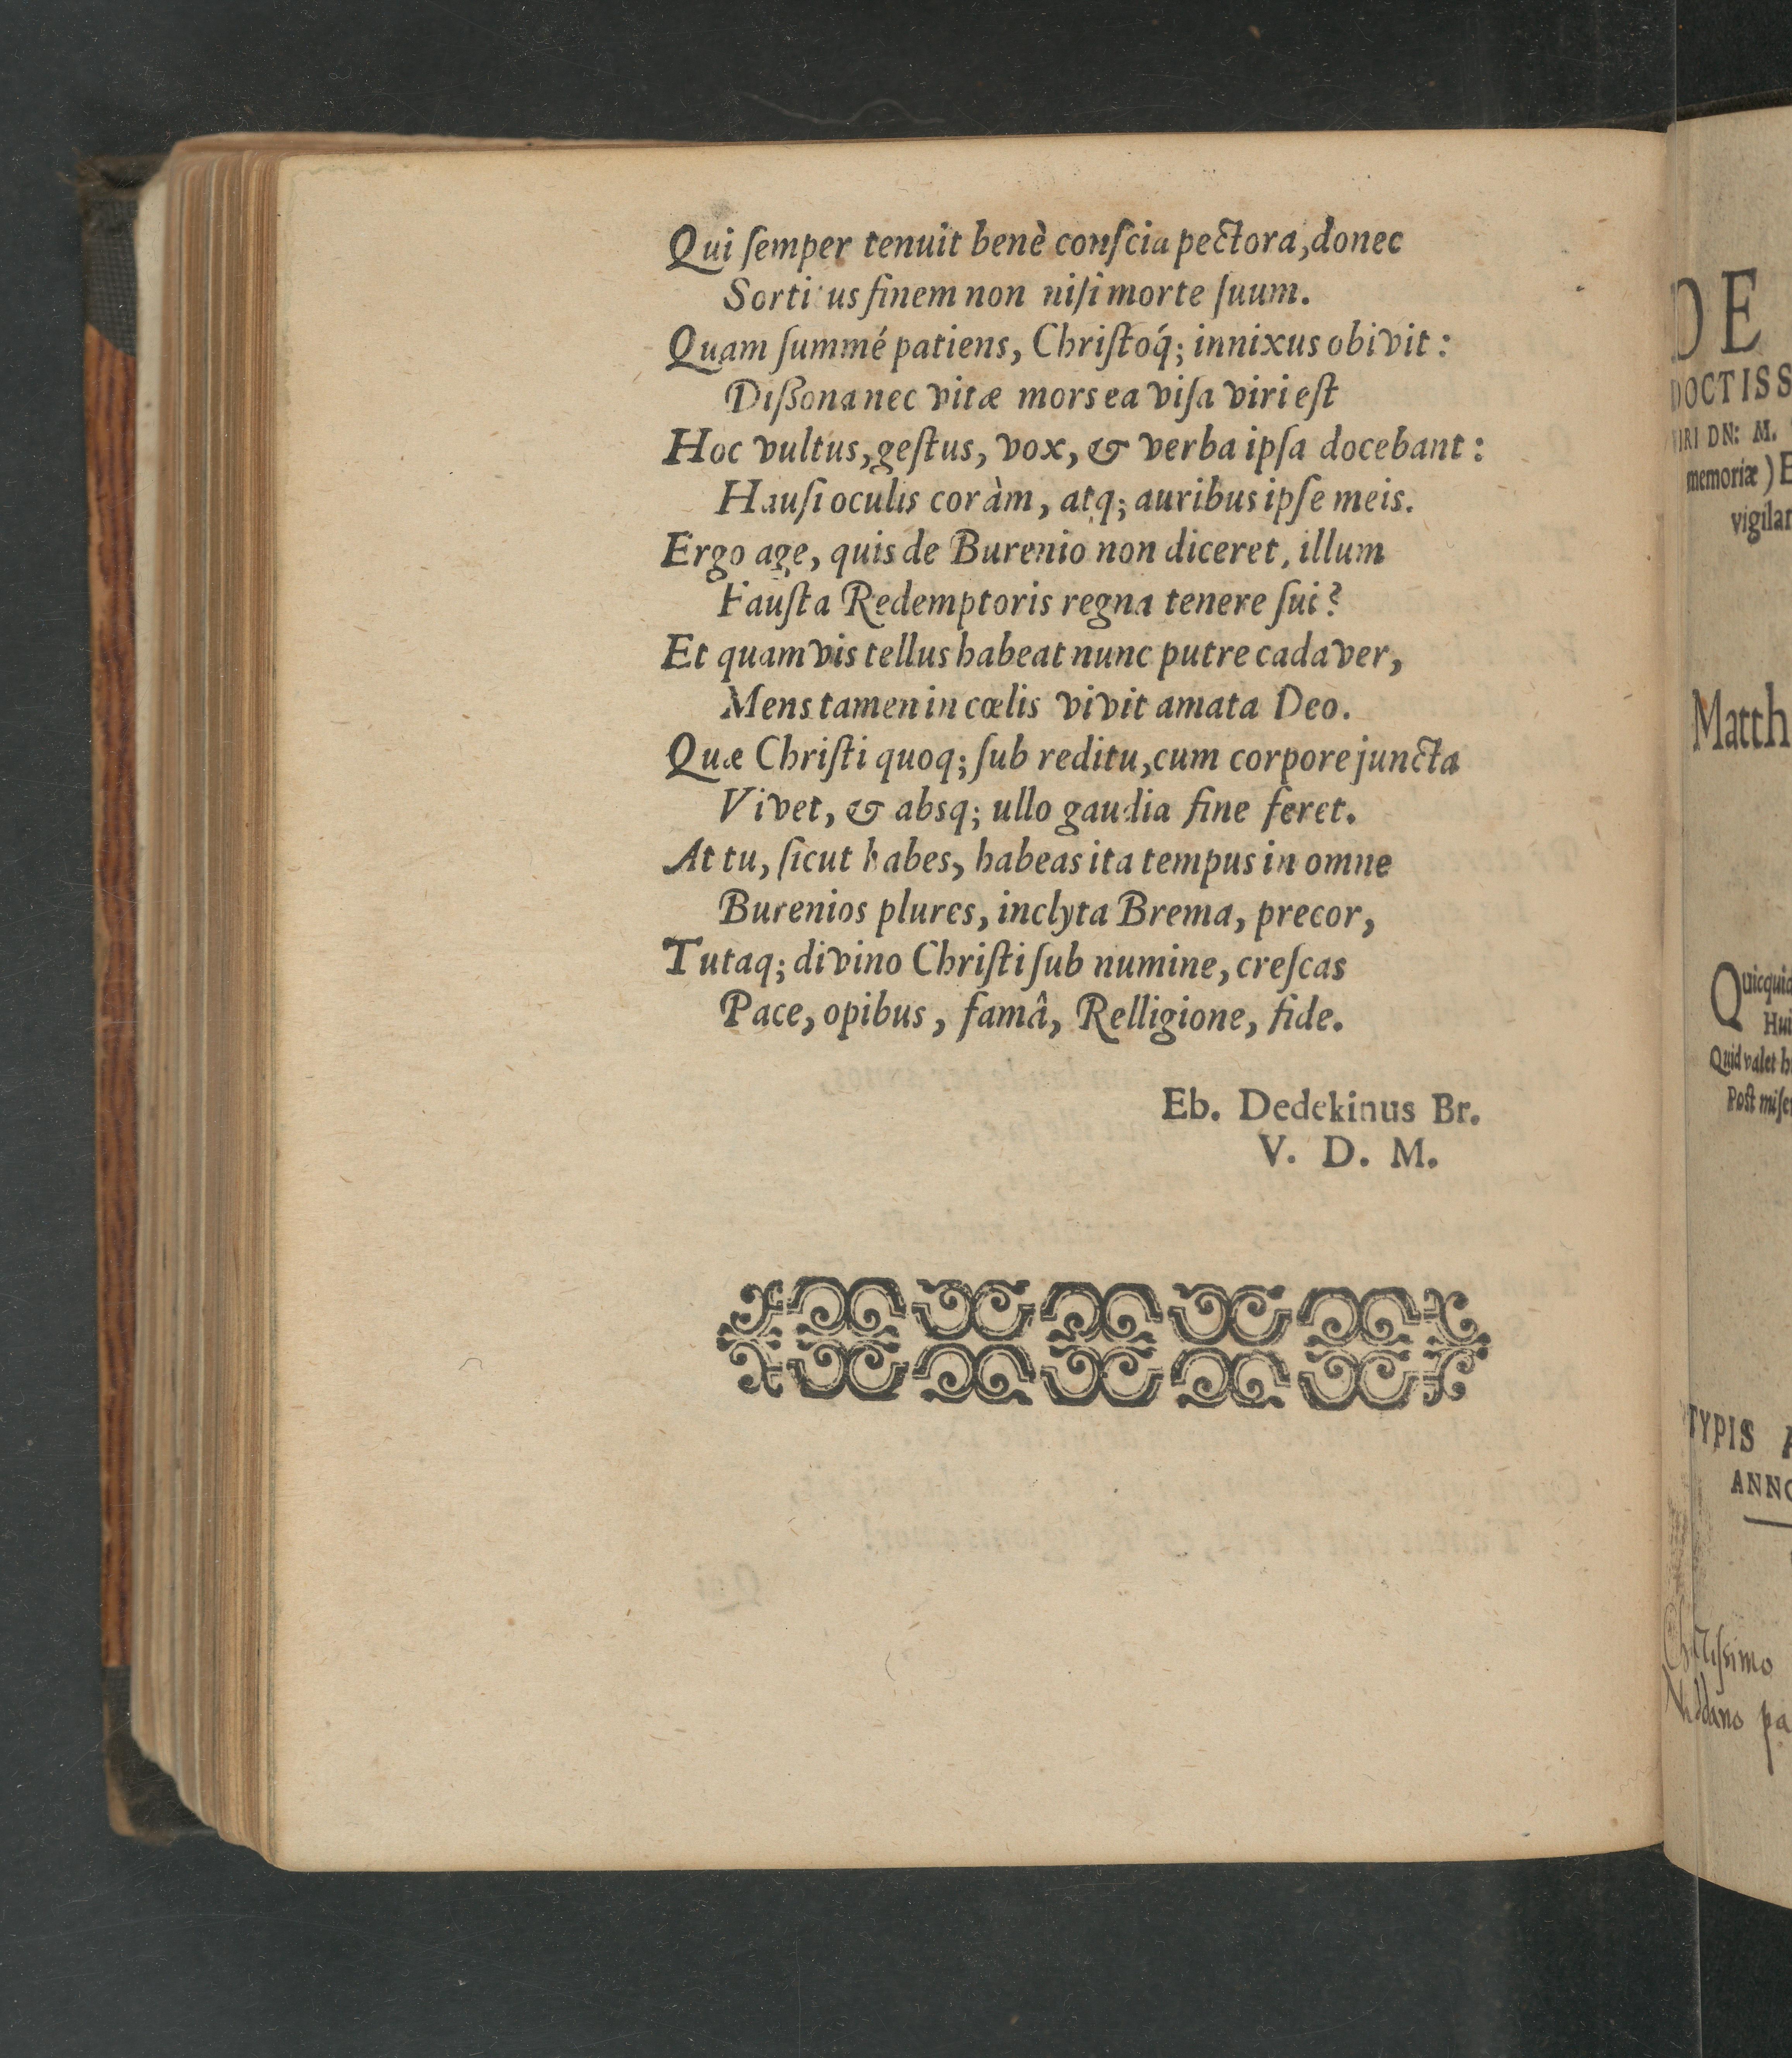 Qui ſemper tenuit benè conſcia pectora, donec
Sortitus finem non niſi morte ſuum.
Quam ſummé patiens, Chriſtoq́; innixus obivit:
Diſſona nec vitæ mors ea viſa viri eſt
Hoc vultus, geſtus, vox, & verba ipſa docebant:
Hauſi oculis coràm, atq; auribus ipſe meis.
Ergo age, quis de Burenio non diceret, illum
Fauſta Redemptoris regna tenere ſui?
Et quamvis tellus habeat nunc putre cadaver,
Mens tamen in cœlis vivit amata Deo.
Quæ Chriſti quoq; ſub reditu, cum corpore juncta
Vivet, & absq; ullo gaudia fine feret.
At tu, ſicut habes, habeas ita tempus in omne
Burenios plures, inclyta Brema, precor,
Tutaq; divino Chriſti ſub numine, creſcas
Pace, opibus, famâ, Relligione, fide.
Eb. Dedekinus Br.
V. D. M.
DE
DOCTISS
VIRI DN: M.
memoriæ) E
vigilan
Matth
Quicquid
Hui
Quid valet h
Poſt miſe
TYPIS A
ANNO